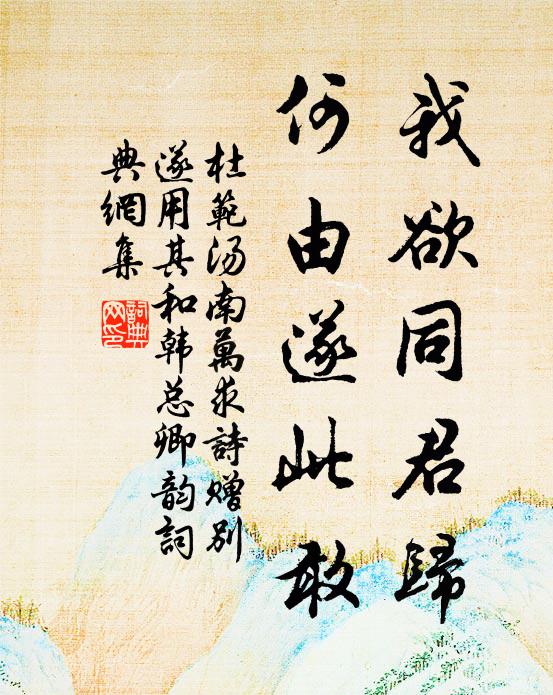 我欲同君歸
何由遂此敢
杜範湯南萬求詩赠别
遂用其和韩总卿韵詞
典網集
詞典
网印